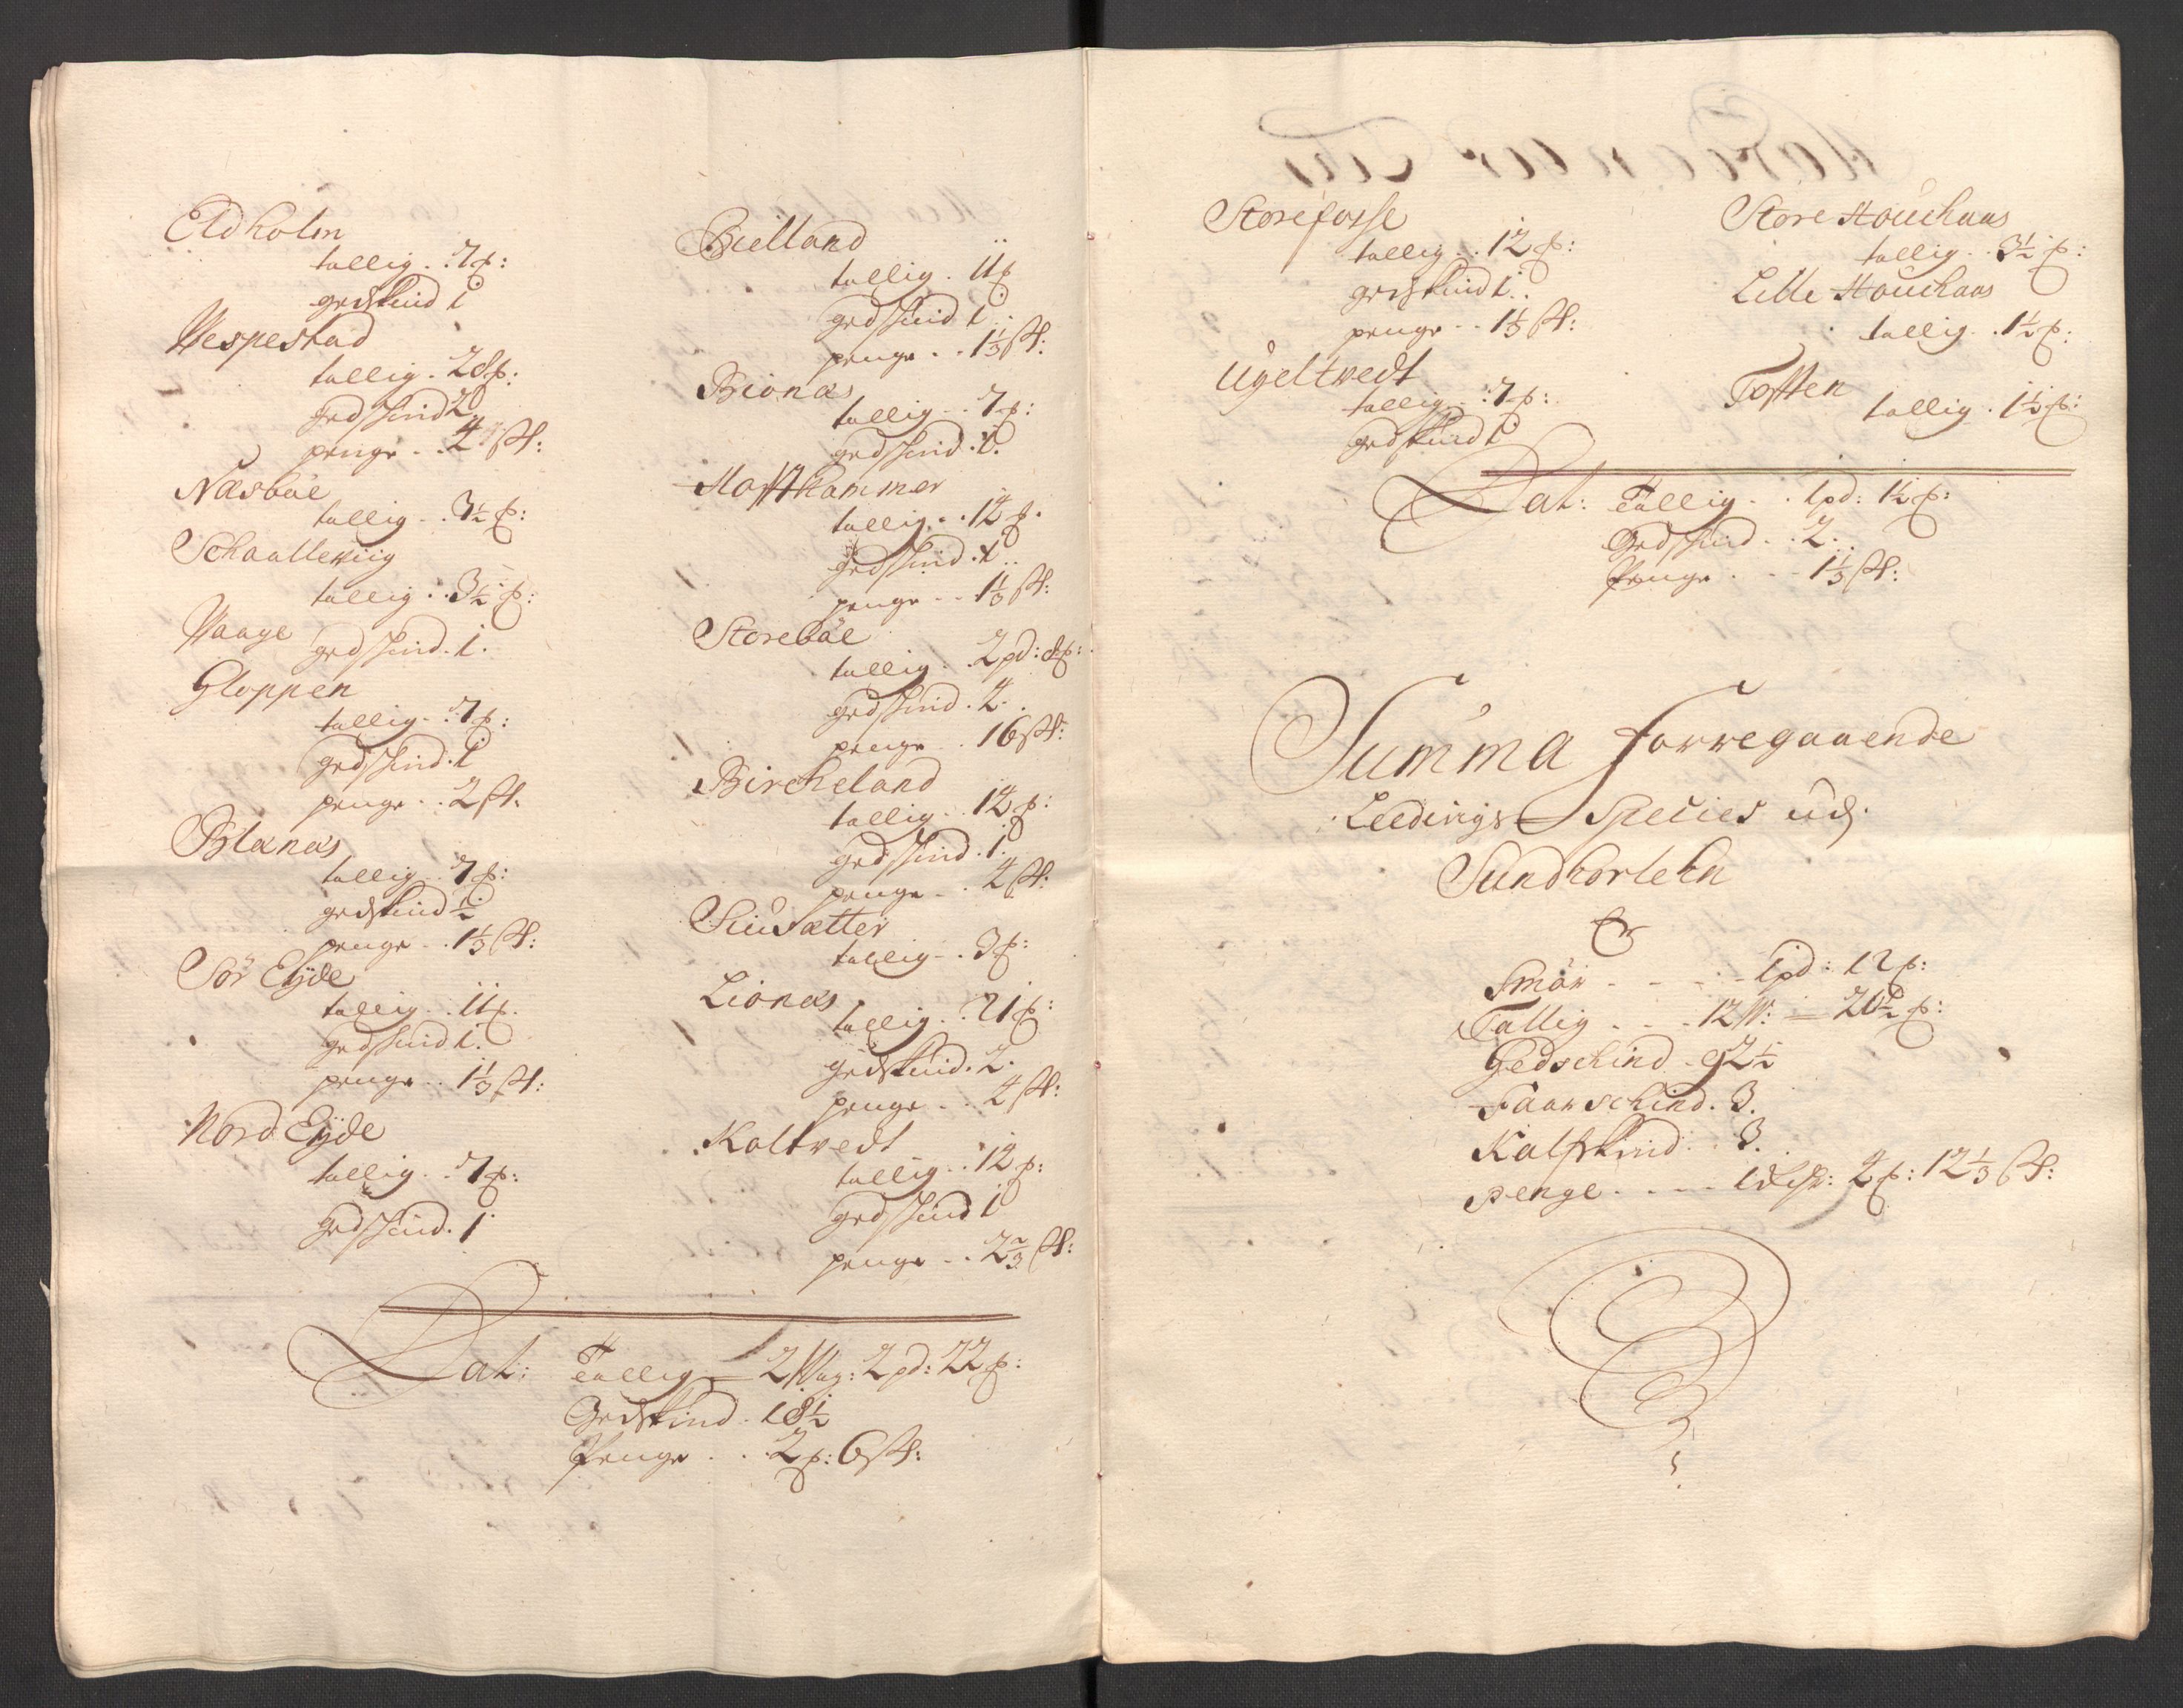 Eldholm
tallig . 7 ℔:
gedskind 1
Vespestad
tallig . 28 ℔:
gedskind 2
penge . . 4 ß:
Næsbøe
tallig . . 3½ ℔:
Schaalleviig
tallig . . 3½ ℔:
Vaage gedskind . 1 .
Gloppen
tallig . . 7 ℔:
gedskind . 1
penge . . 2 ß:
Blanæs
tallig . . 7 ℔:
gedskind ½
penge . . 1⅓ ß:
Sör Eÿde
tallig . . 11 ℔.
gedskind 1 .
penge . . 1⅓ ß:
Nord Eÿde
tallig . . 7 ℔:
gedskind . 1
Bielland
tallig . 11 ℔
gedskind 1 .
penge . . 1⅓ ß:
Bionæs
tallig . . 7 ℔:
gedskind . 1 .
Hoffthammer
tallig . . 14 ℔.
gedskind . 1 . .
penge . . 1⅓ ß:
Storebøe
tallig . . 2 pd: 8 ℔:
gedskind . 4 . .
penge . . 16 ß:
Bircheland
tallig . . 14 ℔:
gedskind . 1 .
penge . . 4 ß:
Siusætter
tallig . . 3 ℔:
Lionæs
tallig . . 21 ℔:
gedskind . 2 .
penge . . 4 ß:
Koltvedt
tallig . . 14 ℔:
gedskind 1
penge . . 2⅔ ß:
Lat: Tallig = 2 Wag: 2 pd: 22 ℔:
Gedskind . 18½
Penge . . . 2 ℔: 6 ß:
Storefosse
tallig . . 12 ℔:
gedskind 1 . .
penge . . 1⅓ ß:
Ugeltvedt
tallig . . 7 ℔:
gedskind 1
Store Houchaas
tallig . . 3½ ℔:
Lille Houchaas
tallig . . 1½ ℔:
Toften
tallig . 1½ ℔:
Lat: Tallig . . 1 pd: 1½ ℔:
Gedskind . . 2 . .
Penge . . . 1⅓ ß:
Summa forregaaende
Leedings Species udj
Sundhorlehn
Er
Smör - - - - 1 pd: 12 ℔:
Tallig . . . 12 W: = 20½ ℔:
Gedschind . 92½
Faarschind . 3 .
Kalfskind . . 3 .
penge . . - - 1 dlr: 2 ℔: 12⅓ ß: